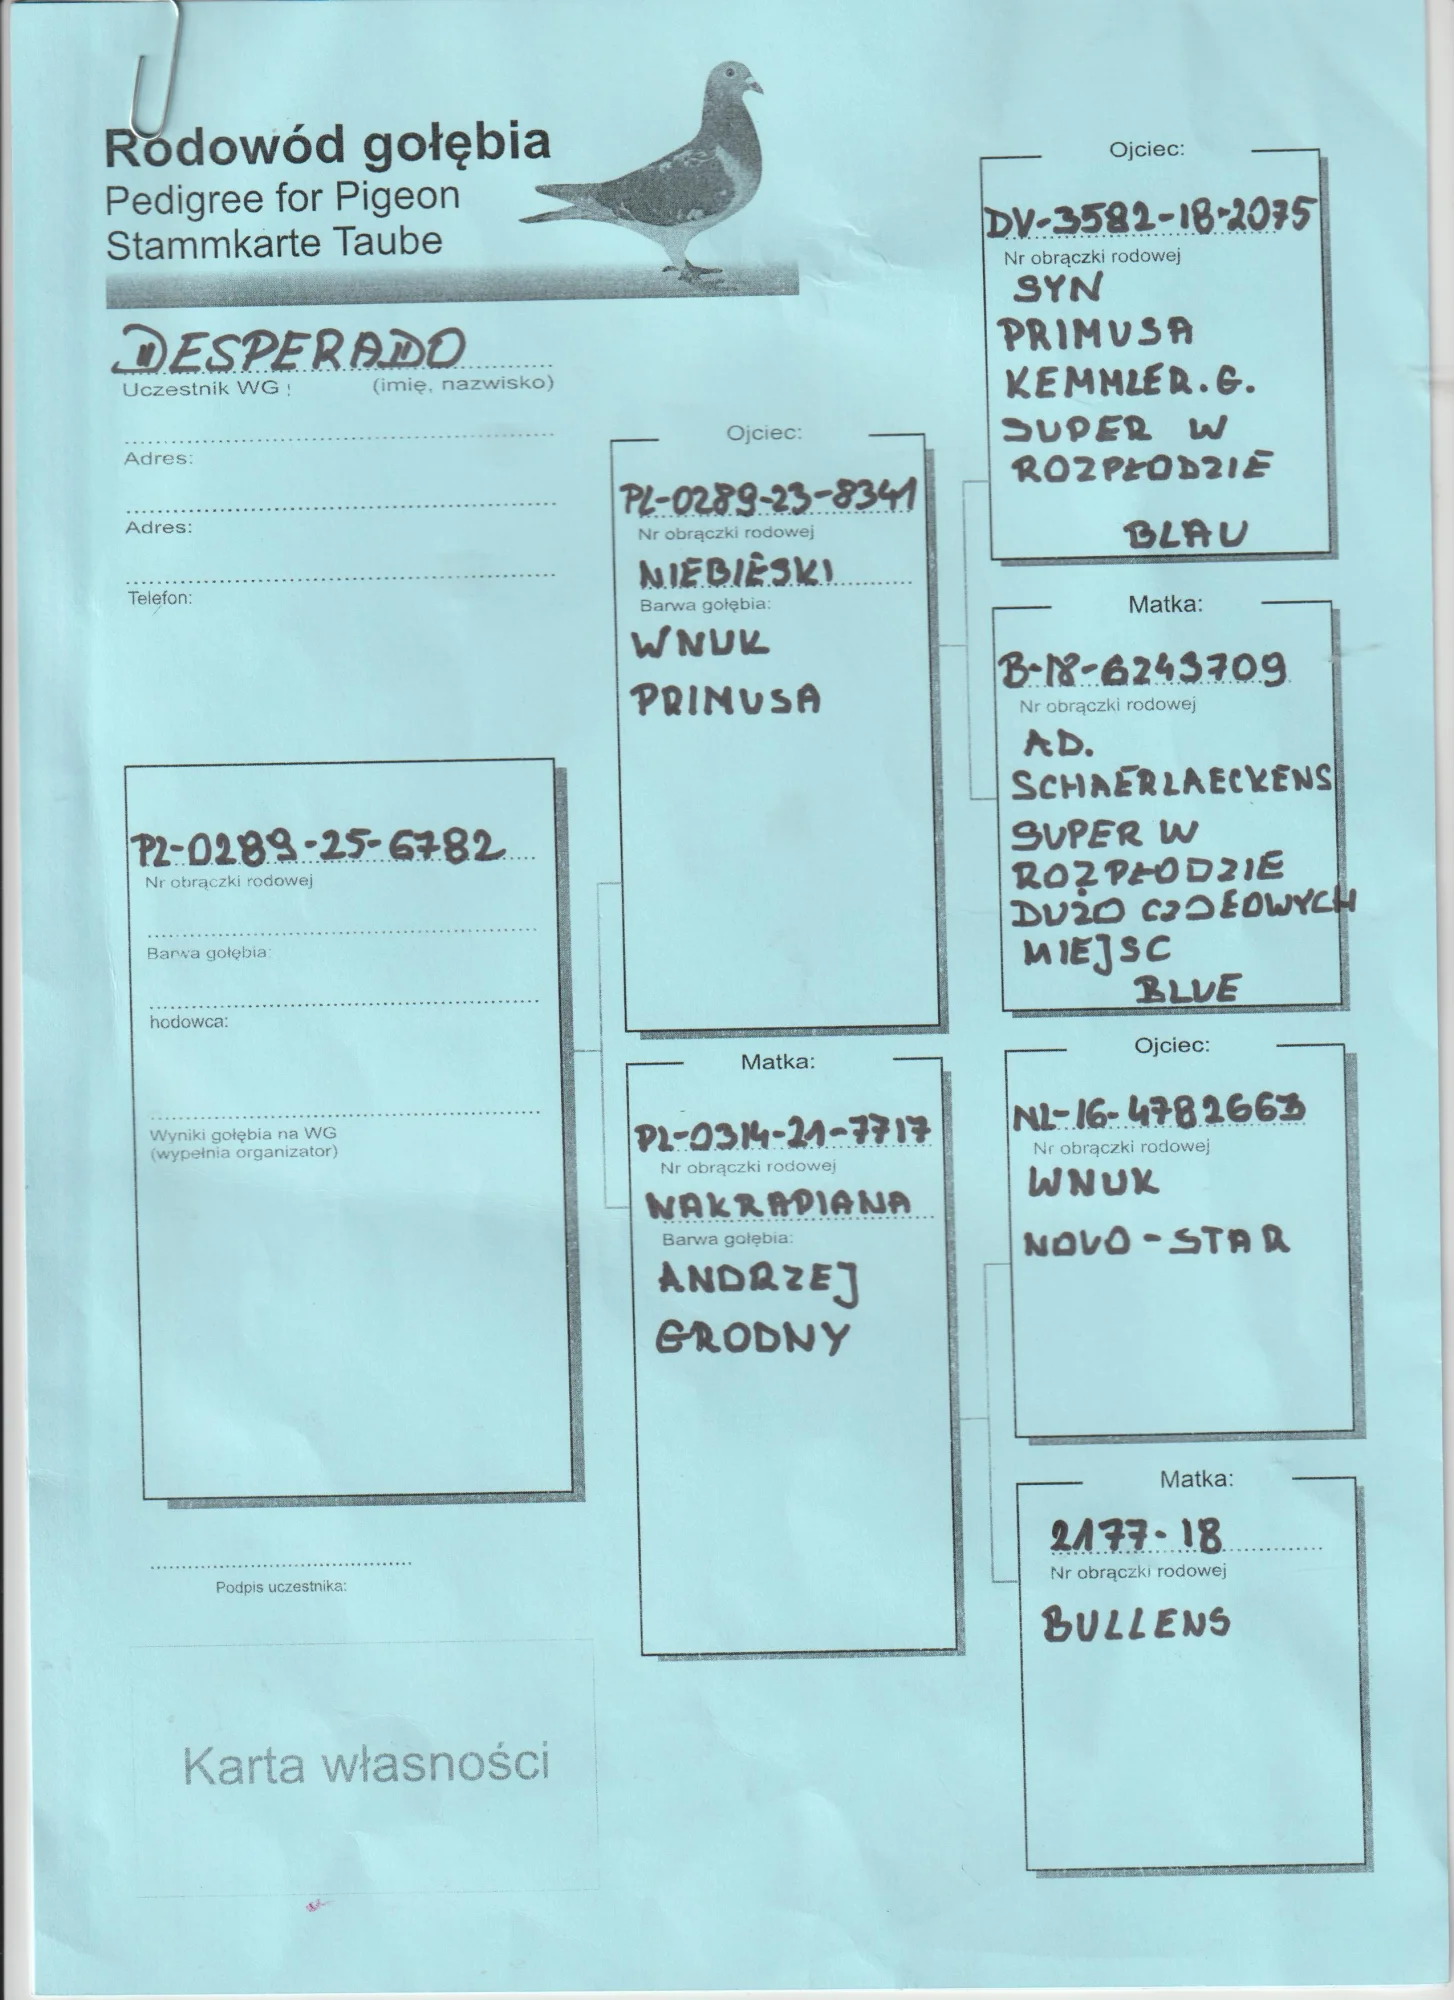 Rodowód gołębia
Pedigree for Pigeon
Stammkarte Taube
DESPERADO
Uczestnik WG : (imię, nazwisko)
Adres:
Adres:
Telefon:
PL-0289-25-6782
Nr obrączki rodowej
Barwa gołębia:
hodowca:
Wyniki gołębia na WG
(wypełnia organizator)
Podpis uczestnika:
Karta własności
Ojciec:
PL-0289-23-8341
Nr obrączki rodowej
NIEBIESKI
Barwa gołębia:
WNUK
PRIMUSA
Matka:
PL-0314-21-7717
Nr obrączki rodowej
NAKRAPIANA
Barwa gołębia:
ANDRZEJ
GRODNY
Ojciec:
DV-3582-18-2075
Nr obrączki rodowej
SYN
PRIMUSA
KEMMLER.G.
SUPER W
ROZPŁODZIE
BLAU
Matka:
B-18-6243709
Nr obrączki rodowej
AD.
SCHAERLAECKENS
SUPER W
ROZPŁODZIE
DUŻO CZOŁOWYCH
MIEJSC
BLUE
Ojciec:
NL-16-4782663
Nr obrączki rodowej
WNUK
NOVO-STAR
Matka:
2177-18
Nr obrączki rodowej
BULLENS